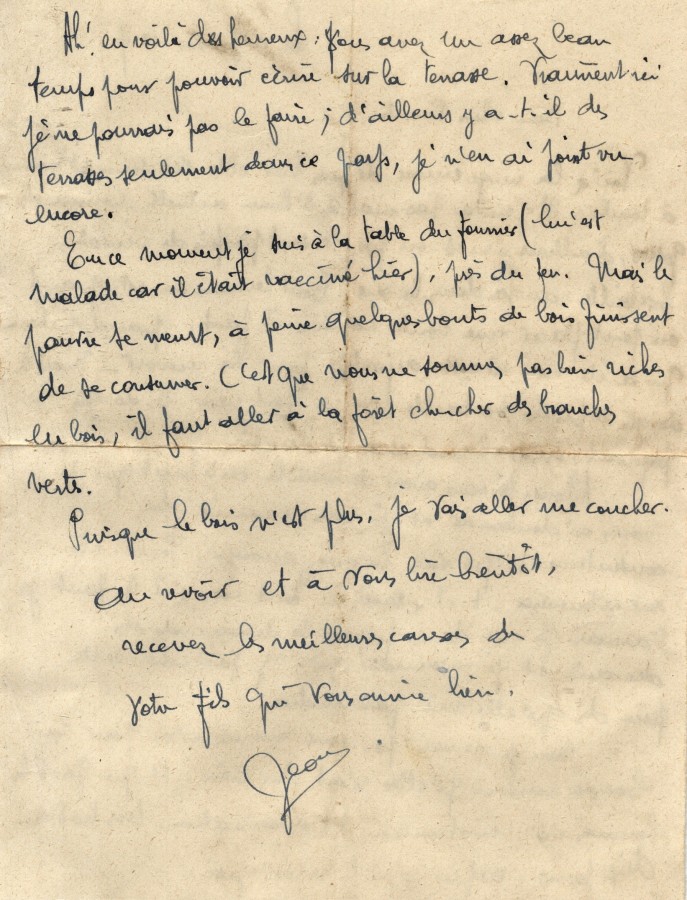 Ah! en voilà des heureux : vous avez un assez beau
temps pour pouvoir écrire sur la terrasse. Vraiment ici
je ne pourrais pas le faire ; d'ailleurs y a-t-il des
terrasses seulement dans ce pays, je n'en ai point vu
encore.
En ce moment je suis à la table du fourrier (lui est
malade car il était vacciné hier), près du feu. Mais le
pauvre se meurt, à peine quelques bouts de bois finissent
de se consumer. C'est que nous ne sommes pas bien riches
en bois, il faut aller à la forêt chercher des branches
vertes.
Puisque le bois n'est plus, je vais aller me coucher.
Au revoir et à vous lire bientôt,
recevez les meilleures caresses de
votre fils qui vous aime bien.
Jean